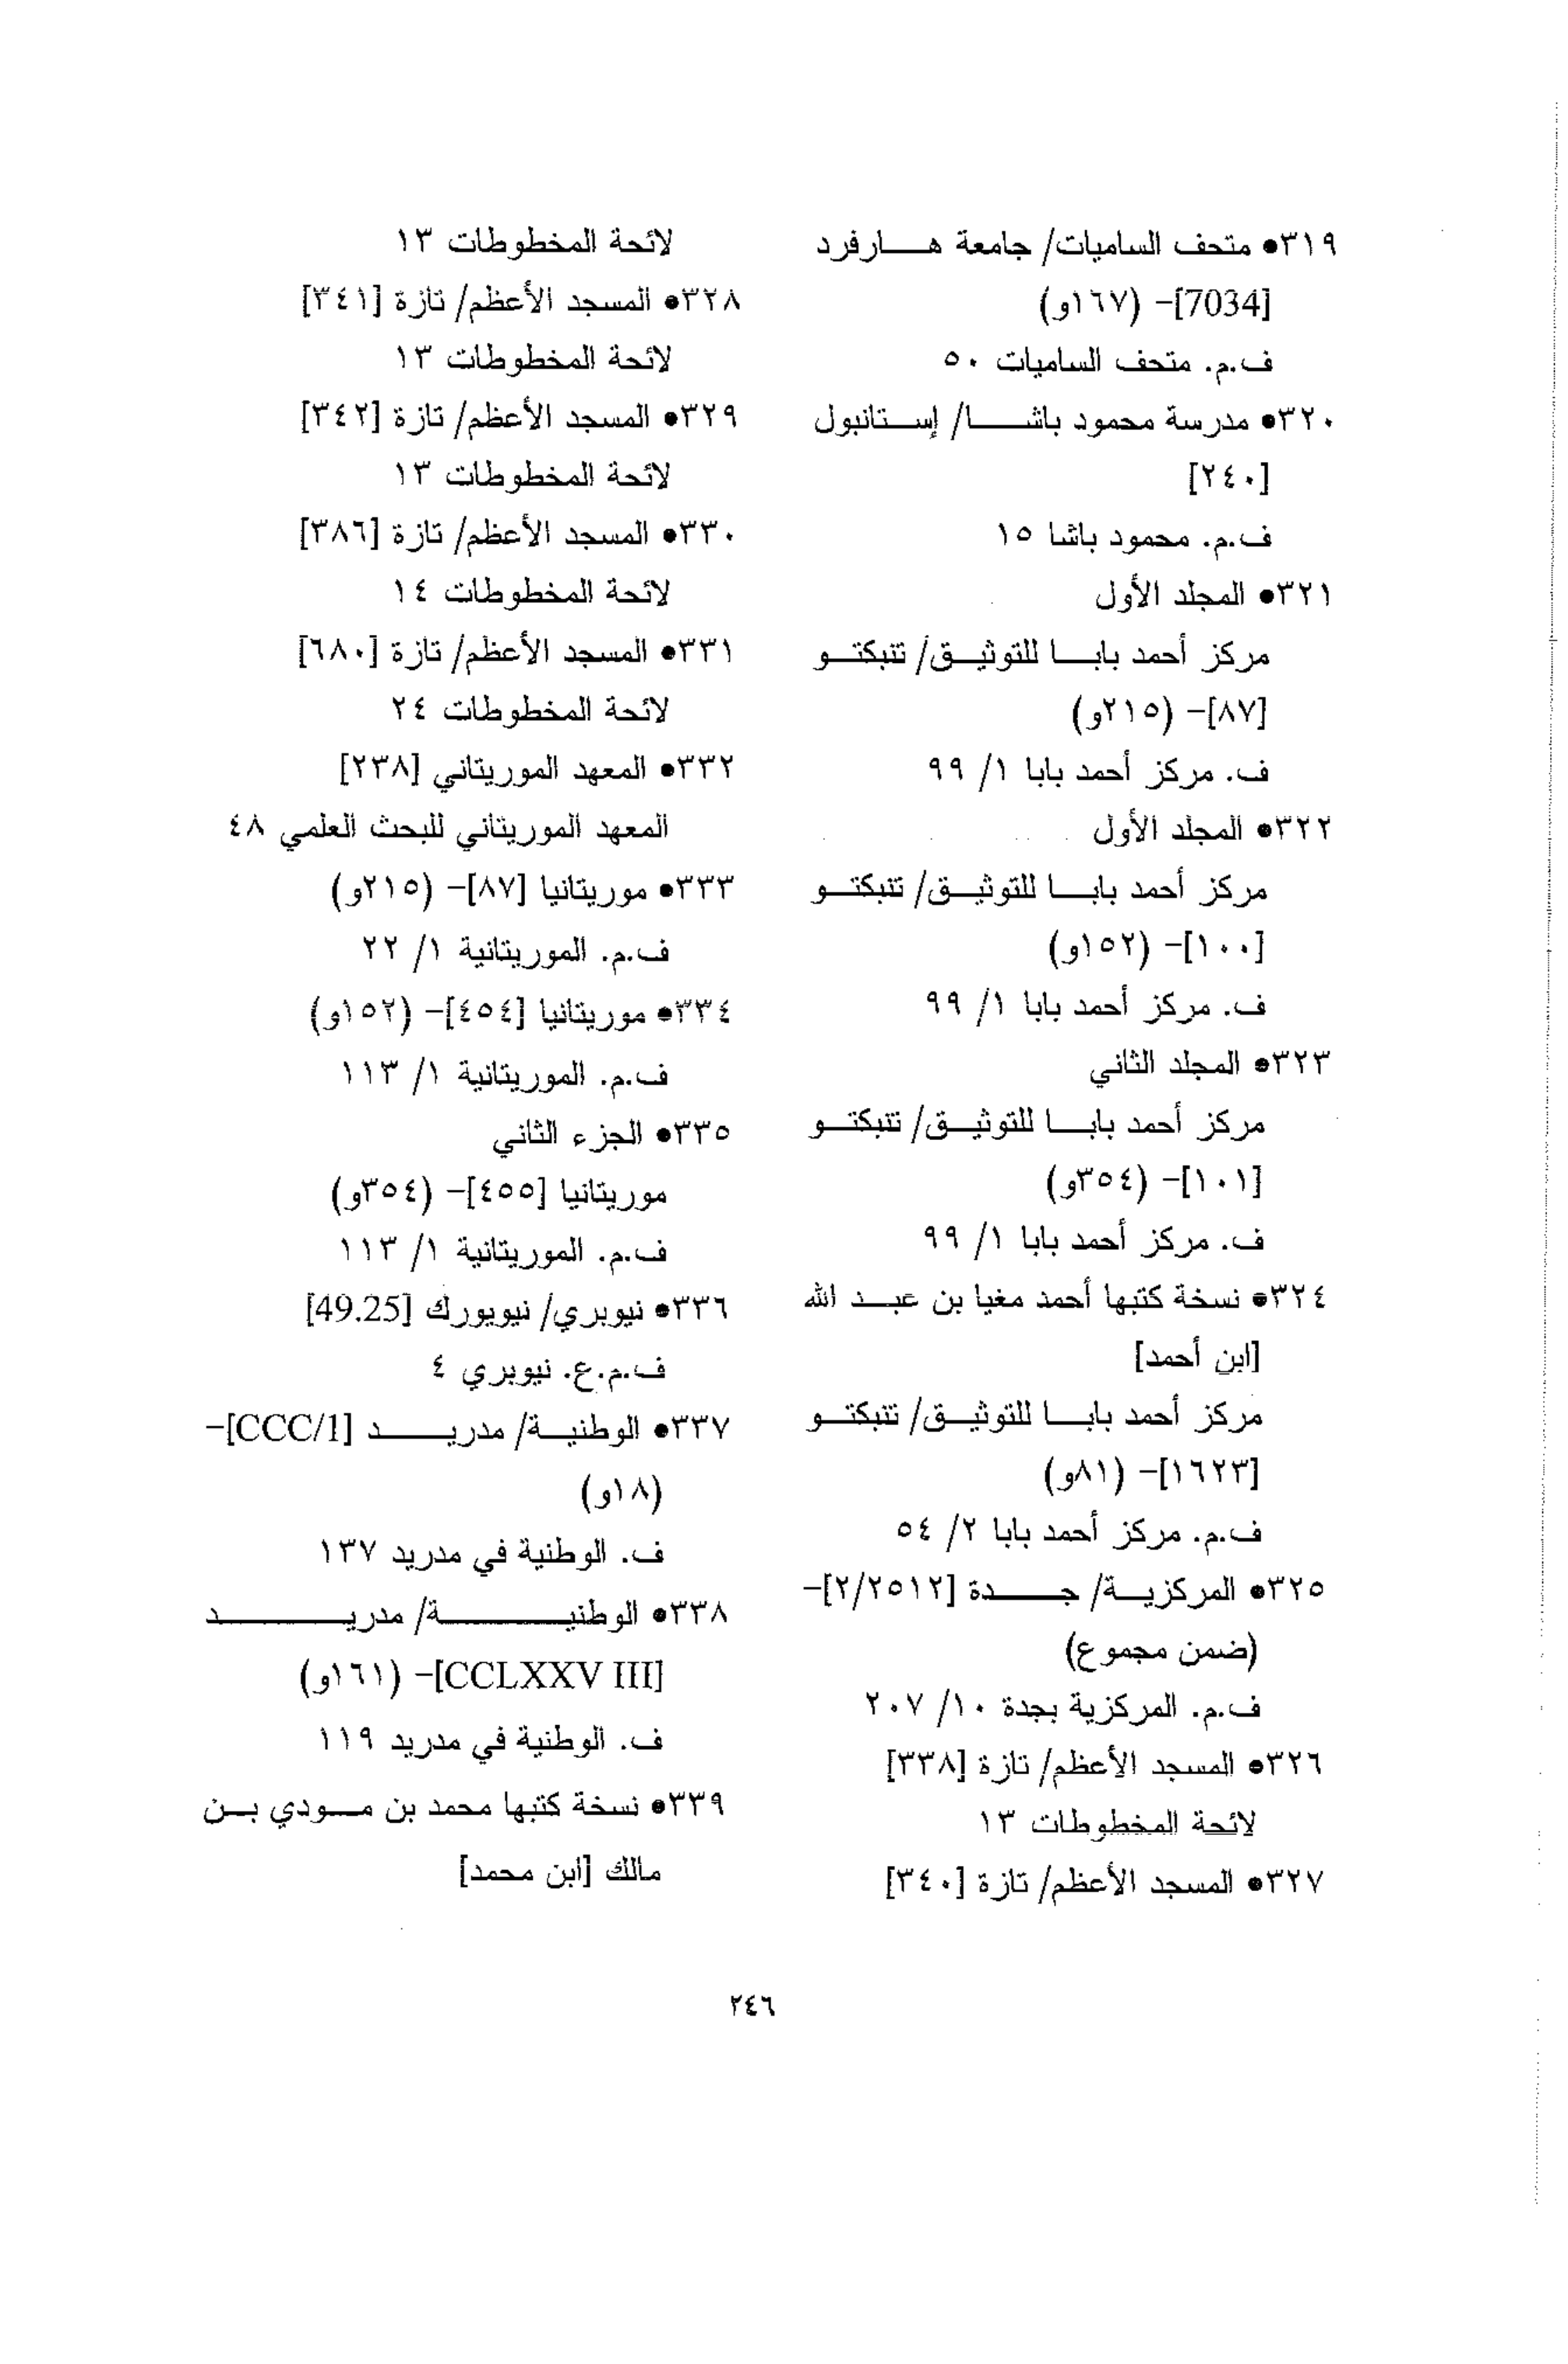 ٣١٩● متحف الساميات/ جامعة هارفرد
[7034]- (١٦٧و)
ف.م. متحف الساميات ٥٠
٣٢٠● مدرسة محمود باشا/ إستانبول
[٢٤٠]
ف.م. محمود باشا ١٥
٣٢١● المجلد الأول
مركز أحمد بابا للتوثيق/ تنبكتو
[٨٧]- (٢١٥و)
ف. مركز أحمد بابا ١/ ٩٩
٣٢٢● المجلد الأول
مركز أحمد بابا للتوثيق/ تنبكتو
[١٠٠]- (١٥٢و)
ف. مركز أحمد بابا ١/ ٩٩
٣٢٣● المجلد الثاني
مركز أحمد بابا للتوثيق/ تنبكتو
[١٠١]- (٣٥٤و)
ف. مركز أحمد بابا ١/ ٩٩
٣٢٤● نسخة كتبها أحمد مغيا بن عبد الله
[ابن أحمد]
مركز أحمد بابا للتوثيق/ تنبكتو
[١٦٢٣]- (٨١و)
ف.م. مركز أحمد بابا ٢/ ٥٤
٣٢٥● المركزية/ جدة [٢/٢٥١٢]-
(ضمن مجموع)
ف.م. المركزية بجدة ١٠/ ٢٠٧
٣٢٦● المسجد الأعظم/ تازة [٣٣٨]
لائحة المخطوطات ١٣
٣٢٧● المسجد الأعظم/ تازة [٣٤٠]
لائحة المخطوطات ١٣
٣٢٨● المسجد الأعظم/ تازة [٣٤١]
لائحة المخطوطات ١٣
٣٢٩● المسجد الأعظم/ تازة [٣٤٢]
لائحة المخطوطات ١٣
٣٣٠● المسجد الأعظم/ تازة [٣٨٦]
لائحة المخطوطات ١٤
٣٣١● المسجد الأعظم/ تازة [٦٨٠]
لائحة المخطوطات ٢٤
٣٣٢● المعهد الموريتاني [٢٣٨]
المعهد الموريتاني للبحث العلمي ٤٨
٣٣٣● موريتانيا [٨٧]- (٢١٥و)
ف.م. الموريتانية ١/ ٢٢
٣٣٤● موريتانيا [٤٥٤]- (١٥٢و)
ف.م. الموريتانية ١/ ١١٣
٣٣٥● الجزء الثاني
موريتانيا [٤٥٥]- (٣٥٤و)
ف.م. الموريتانية ١/ ١١٣
٣٣٦● نيوبري/ نيويورك [49.25]
ف.م.ع. نيوبري ٤
٣٣٧● الوطنية/ مدريد [CCC/1]-
(١٨و)
ف. الوطنية في مدريد ١٣٧
٣٣٨● الوطنية/ مدريد
[CCLXXV III]- (١٦١و)
ف. الوطنية في مدريد ١١٩
٣٣٩● نسخة كتبها محمد بن مودي بن
مالك [ابن محمد]
٢٤٦